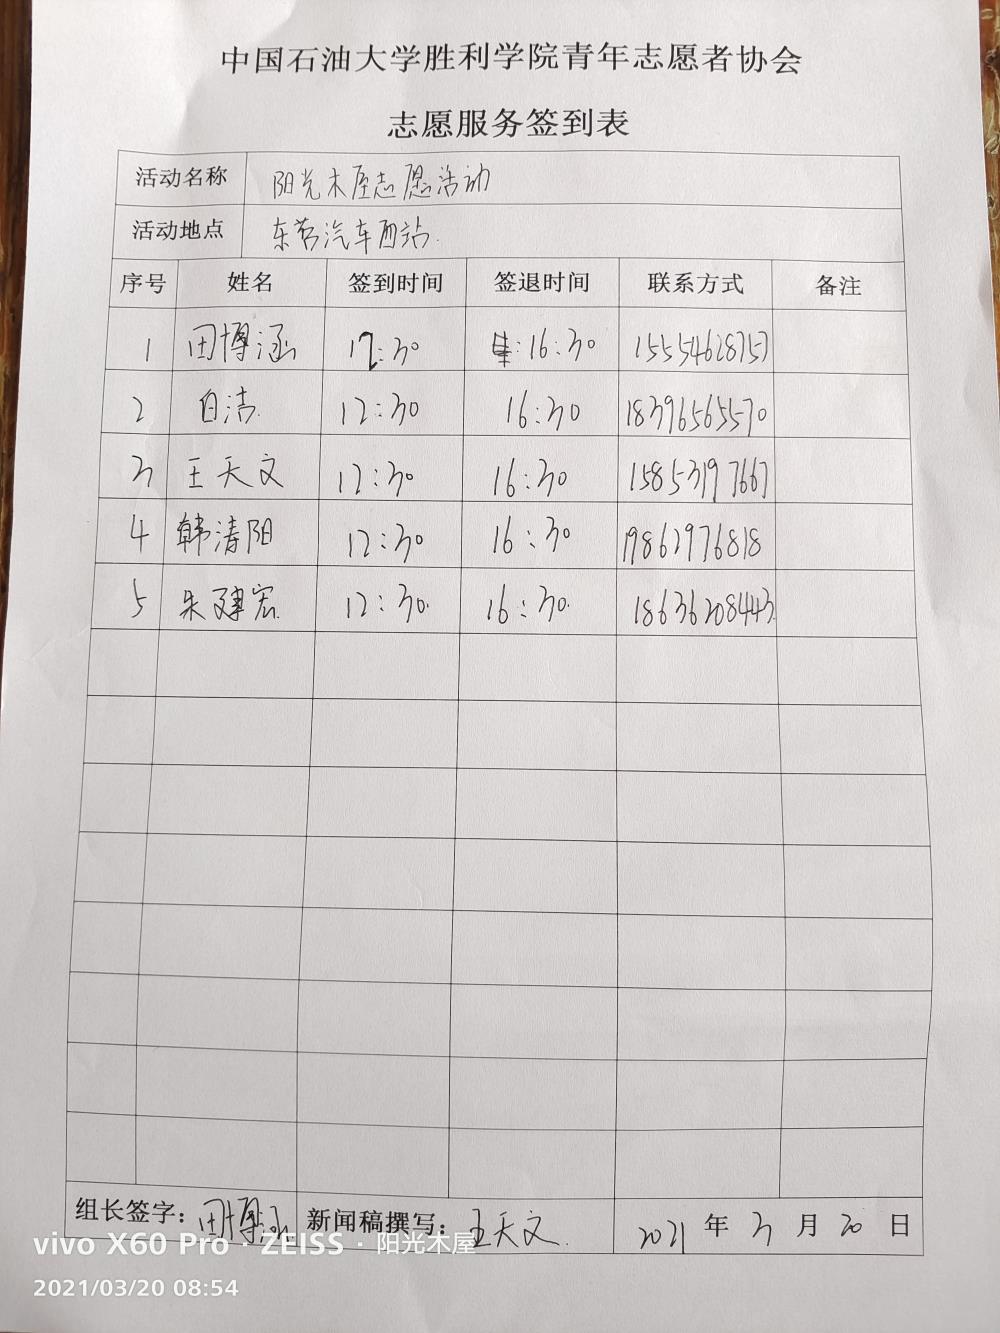 中国石油大学胜利学院青年志愿者协会
志愿服务签到表
活动名称 阳光木屋志愿活动
活动地点 东营汽车西站.
序号 姓名 签到时间 签退时间 联系方式 备注
1 田博涵 12:30 16:30 15554628757
2 白洁. 12:30 16:30 18396565570
3 王天文 12:30 16:30 15853197667
4 韩清阳 12:30 16:30 19862976818
5 朱建宏. 12:30. 16:30. 18636208443.
组长签字: 田博涵 新闻稿撰写: 王天文. 2021 年 3 月 20 日
vivo X60 Pro · ZEISS · 阳光木屋
2021/03/20 08:54